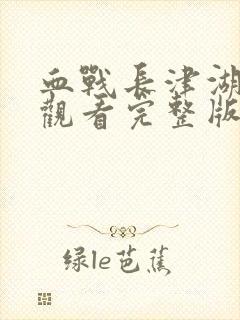 血戰長津湖
觀看完整版
绿le芭蕉